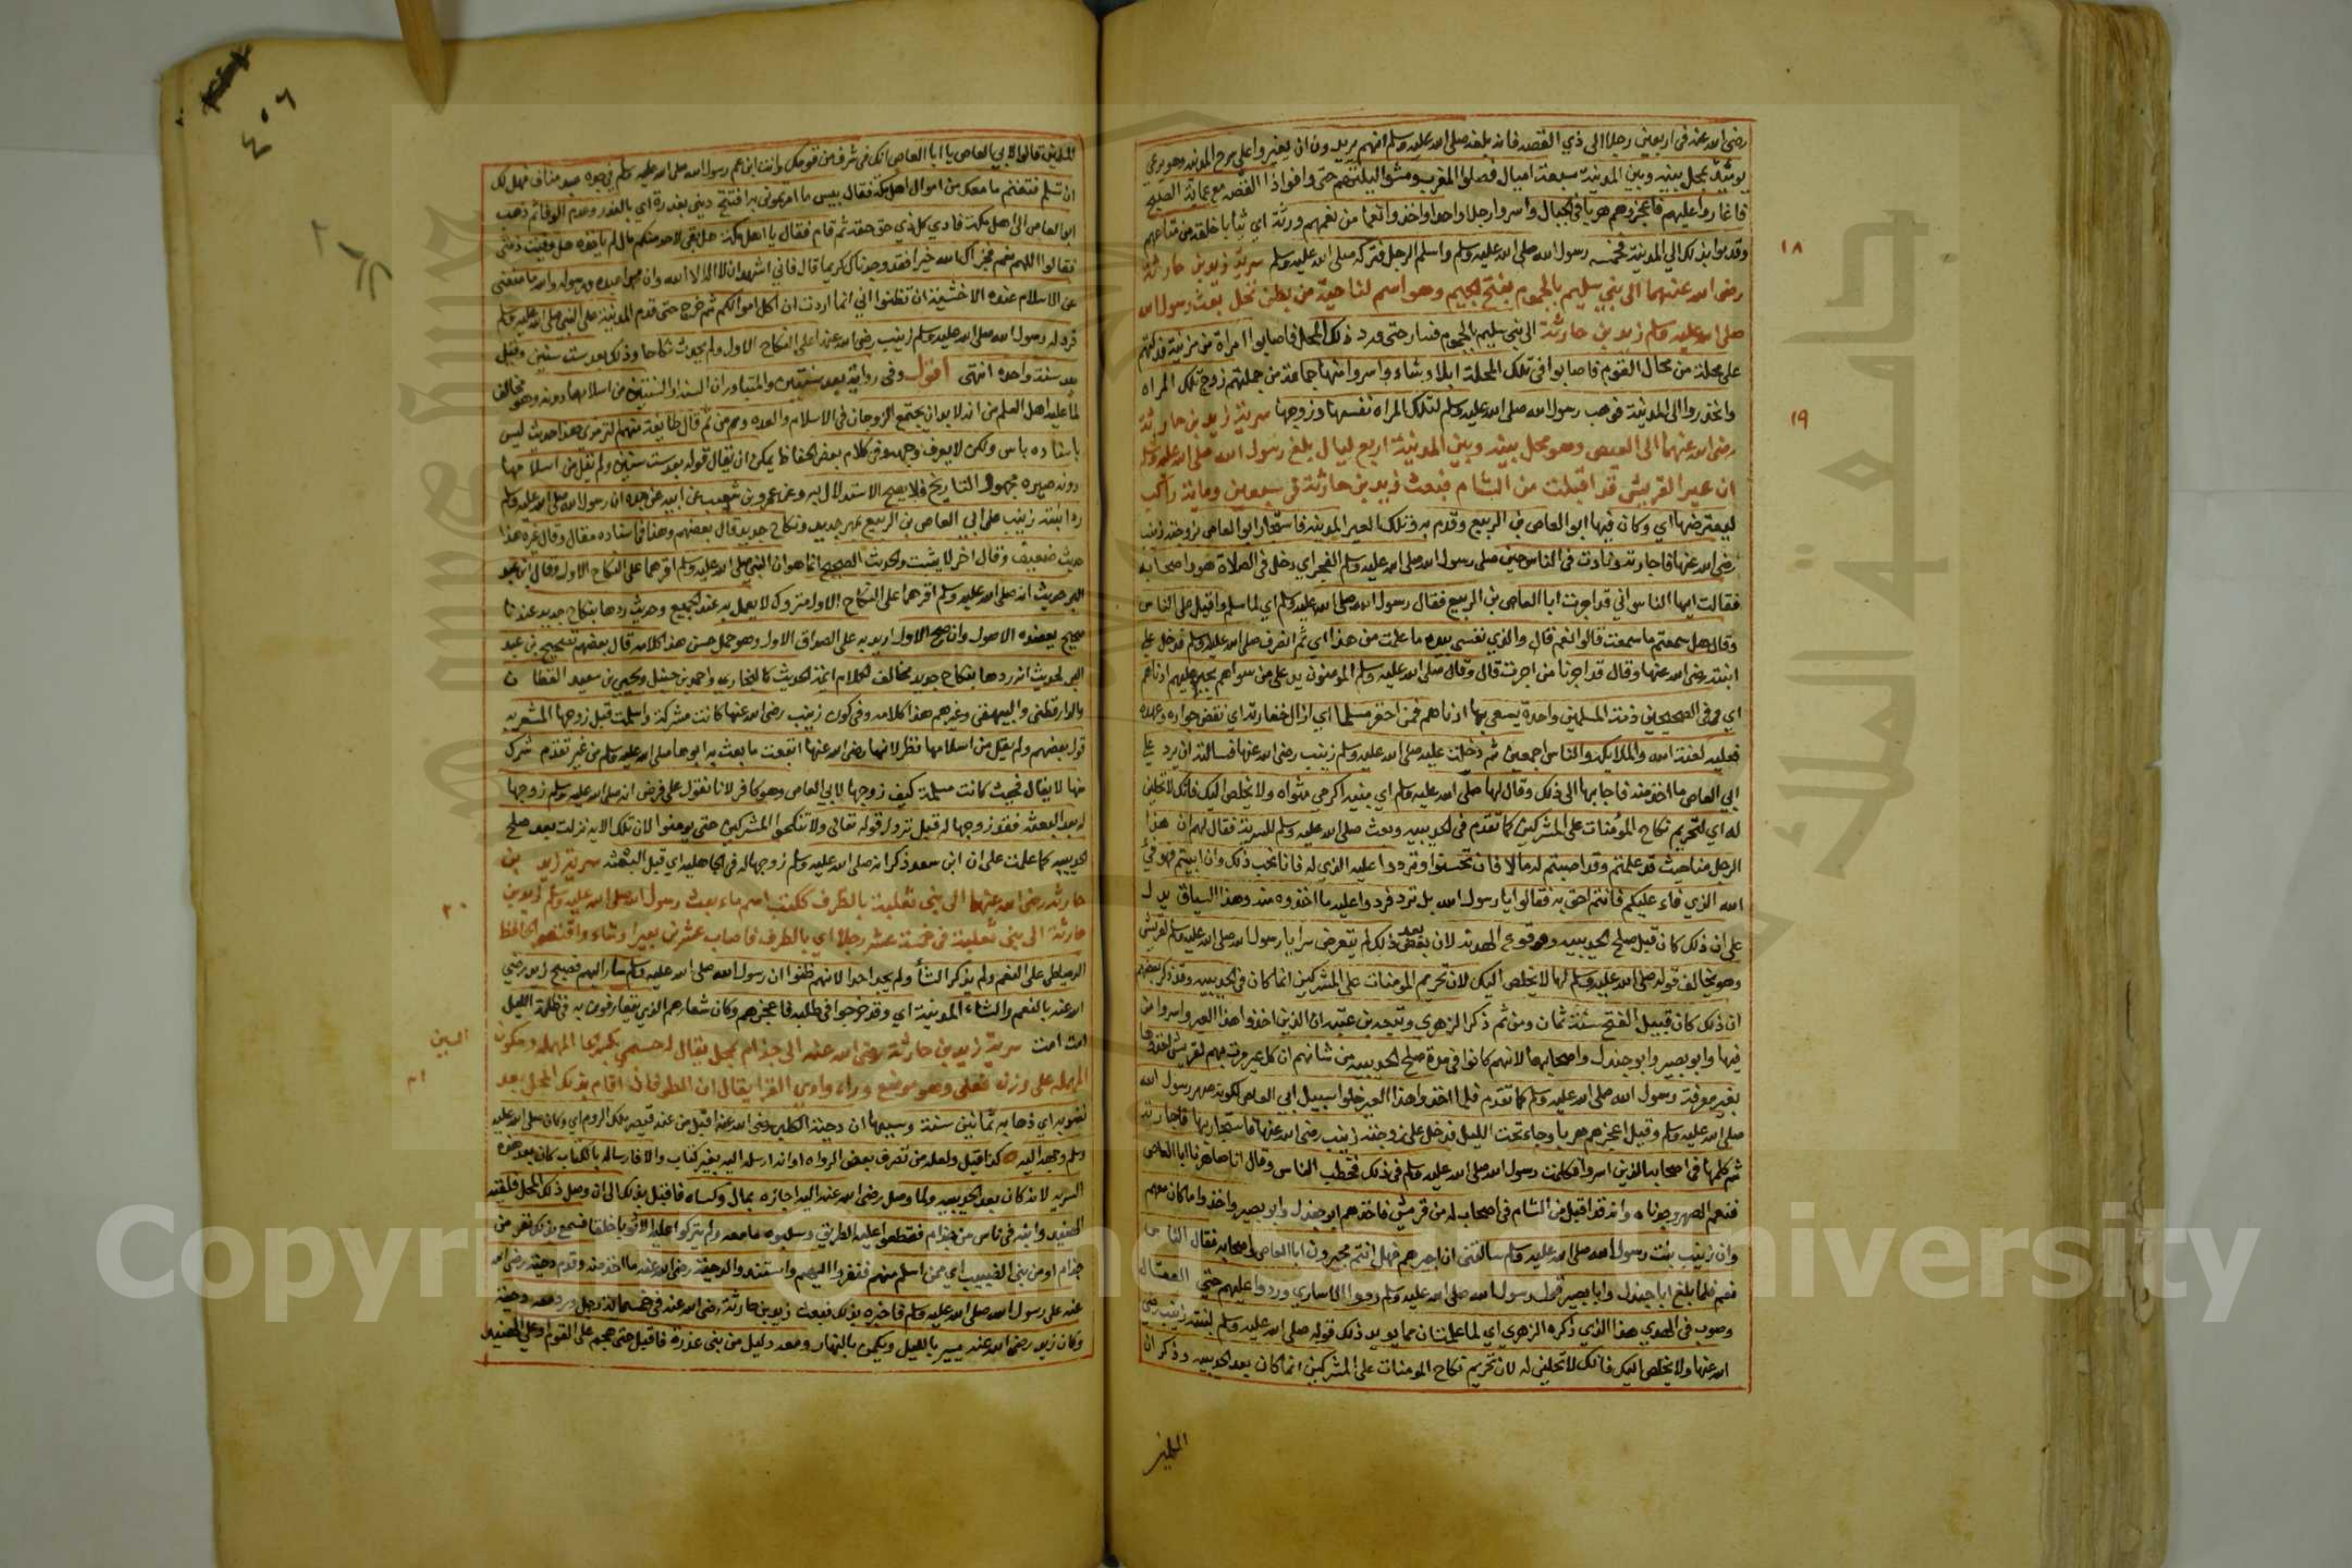 رضى الله عنه فى اربعين رجلا الى ذي القصه فانه بلغه صلى الله عليه وسلم انهم يريدون ان يغيروا على سرح المدينه وهو يرعى
يومئذ بمحل بينه وبين المدينة سبعة اميال فصلوا المغرب ومشوا ليلتهم حتى وافوا ذا القصه مع عماية الصبح
فاغاروا عليهم فاعجزوهم هربا فى الجبال واسروا رجلا واحدا واخذوا نعما من نعمهم ورثة اي ثيابا خلقه من متاعهم
وقدموا بذلك الي المدينة فخمسه رسول الله صلى الله عليه وسلم واسلم الرجل فتركه صلى الله عليه وسلم سرية زيد بن حارثة
١٨
رضى الله عنهما الى بني سليم بالجموم بفتح الجيم وهو اسم لناحية من بطن نخل بعث رسول الله
صلى الله عليه وسلم زيد بن حارثة الى بني سليم بالجموم فسار حتى ورد ذلك المحل فاصابوا امراة من مزينة فدلتهم
على محلة من محال القوم فاصابوا فى تلك المحلة ابلا وشاء واسروا منها جماعة من جملتهم زوج تلك المراه
وانحدروا الى المدينة فوهب رسول الله صلى الله عليه وسلم لتلك المراه نفسها وزوجها سرية زيد بن حارثة
١٩
رضى الله عنهما الى العيص وهو محل بينه وبين المدينة اربع ليال بلغ رسول الله صلى الله عليه وسلم
ان عير القريش قد اقبلت من الشام فبعث زيد بن حارثة فى سبعين وماية راكب
ليعترضها اي وكان فيها ابو العاص بن الربيع وقدم به وتلك العير المدينه فاستجار ابو العاص بزوجته زينب
رضى الله عنها فاجارته ونادت فى الناس حين صلى رسول الله صلى الله عليه وسلم الفجر اي دخل فى الصلاة هو واصحابه
فقالت ايها الناس اني قد اجرت ابا العاص بن الربيع فقال رسول الله صلى الله عليه وسلم اي لما سلم واقبل على الناس
وقال هل سمعتم ما سمعت قالوا نعم قال والذي نفسي بيده ما علمت من هذا اي ثم انصرف صلى الله عليه وسلم فدخل على
ابنته رضى الله عنها وقال قد اجرنا من اجرت قال وقال صلى الله عليه وسلم المومنون يد على من سواهم يجير عليهم ادناهم
اي وفى الصحيحين ذمة المسلمين واحدة يسعى بها ادناهم فمن اخفر مسلما اي ازال خفارته اي نقض جواره وعهده
فعليه لعنة الله والملايكه والناس اجمعين ثم دخلت عليه صلى الله عليه وسلم زينب رضى الله عنها فسالته ان يرد على
ابي العاص ما اخذ منه فاجابها الى ذلك وقال لها صلى الله عليه وسلم اي بنيه اكرمي مثواه ولا يخلص اليك فانك لا تحلين
له اي لتحريم نكاح المؤمنات على المشركين كما تقدم فى الحديبيه وبعث صلى الله عليه وسلم للسرية فقال لهم ان هذا
الرجل منا حيث قد علمتم وقد اصبتم له مالا فان تحسنوا وتردوا عليه الذي له فانا نحب ذلك وان ابيتم فهو فيء
الله الذي فاء عليكم فانتم احق به فقالوا يا رسول الله بل نرد فردوا عليه ما اخذوه منه وهذا السياق يدل
على ان ذلك كان قبل صلح الحديبيه ووقوع الهدنه لان بعد ذلك لم يتعرض سرايا رسول الله صلى الله عليه وسلم لقريش
وهو يخالف قوله صلى الله عليه وسلم لها لا يخلص اليك لان تحريم المومنات على المشركين انما كان فى الحديبيه وقد ذكر بعضهم
ان ذلك كان قبيل الفتح سنة ثمان ومن ثم ذكر الزهري وتبعه بن عقبه ان الذين اخذوا هذا العير واسروا من
فيها وابو بصير وابو جندل واصحابهما لانهم كانوا فى مدة صلح الحديبيه من شانهم ان كل عير مرت بهم لقريش اخذوها
بغير معرفة رسول الله صلى الله عليه وسلم كما تقدم فلما اخذوا هذا العير خلوا سبيل ابي العاص لكونه صهر رسول الله
صلى الله عليه وسلم وقيل اعجزهم هربا وجاء تحت الليل فدخل على زوجته زينب رضى الله عنها فاستجار بها فاجارته
ثم كلمها فى اصحابه الذين اسروا فكلمت رسول الله صلى الله عليه وسلم فى ذلك فخطب الناس وقال انا صاهرنا ابا العاص
فنعم الصهر وجدناه وانه قد اقبل من الشام فى اصحاب له من قريش فاخذهم ابو جندل وابو بصير واخذوا ما كان معهم
وان زينب بنت رسول الله صلى الله عليه وسلم سالتني ان اجيرهم فهل انتم مجيرون ابا العاص واصحابه فقال الناس
نعم فلما بلغ ابا جندل وابا بصير قول رسول الله صلى الله عليه وسلم ردوا الاسارى وردوا عليهم حتى العقال
وصوب فى الهدي هذا الذي ذكره الزهري اي لما علمت ان مما يويد ذلك قوله صلى الله عليه وسلم لبنته زينب رضى
الله عنها ولا يخلص اليك فانك لا تحلين له لان تحريم نكاح المومنات على المشركين انما كان بعد الحديبيه وذكر ان
٤٠٦
المسلمين قالوا لابي العاص يا ابا العاص انك فى شرف من قومك وانت ابن عم رسول الله صلى الله عليه وسلم فهل لك
ان تسلم فتغنم ما معك من اموال اهل مكة فقال بيس ما امرتموني به افتتح ديني بغدرة اي بالغدر وعدم الوفا ثم ذهب
ابو العاص الى اهل مكة فادي كل ذي حق حقه ثم قام فقال يا اهل مكة هل بقى لاحد منكم مال لم ياخذه هل وفيت ذمتي
فقالوا اللهم نعم فجزاك الله خيرا فقد وجدناك كريما قال فاني اشهد ان لا اله الا الله وان محمدا عبده ورسوله والله ما منعني
عن الاسلام عنده الا خشية ان تظنوا اني انما اردت ان اكل اموالكم ثم خرج حتى قدم المدينة على النبى صلى الله عليه وسلم
فرد له رسول الله صلى الله عليه وسلم زينب رضى الله عنها على النكاح الاول ولم يحدث نكاحا وذلك بعد ست سنين وقيل
بعد سنة واحده انتهى اقول وفى رواية بعد سنتين والمتبادر ان السنه او السنتين من اسلامها دونه وهو مخالف
لما عليه اهل العلم من انه لا بد ان يجتمع الزوجان فى الاسلام والعده ومن ثم قال طايفة منهم الترمزى هذا حديث ليس
باسناده باس ولكن لا يعرف وجهه وفى كلام بعض الحفاظ يمكن ان يقال قوله بعد ست سنين ولم يقل من اسلامها
دونه صيره مجهول التاريخ فلا يصح الاستدلال به وعن عمرو بن شعيب عن ابيه عن جده ان رسول الله صلى الله عليه وسلم
رد ابنته زينب على ابي العاص بن الربيع بمهر جديد ونكاح جديد قال بعضهم وهذا فى اسناده مقال وقال غيره هذا
حديث ضعيف وقال اخر لا يثبت والحديث الصحيح انما هو ان النبي صلى الله عليه وسلم اقرهما على النكاح الاول وقال ابن عبد
البر حديث انه صلى الله عليه وسلم اقرهما على النكاح الاول متروك لا يعمل به عند الجميع وحديث ردها بنكاح جديد عندنا
صحيح يعضده الاصول وان صح الاول اريد به على الصداق الاول وهو حمل حسن هذا كلامه قال بعضهم تصحيح بن عبد
البر لحديث انه ردها بنكاح جديد مخالف لكلام ائمة الحديث كالبخاري واحمد بن حنبل ويحيى بن سعيد القطان
والدارقطني والبيهقى وغيرهم هذا كلامه وفى كون زينب رضى الله عنها كانت مشركة واسلمت قبل زوجها المشعر به
قول بعضهم ولم يقل من اسلامها نظر لانها رضى الله عنها اتبعت ما بعث به ابوها صلى الله عليه وسلم من غير تقدم شرك
منها لا يقال فحيث كانت مسلمة كيف زوجها لابي العاص وهو كافر لانا نقول على فرض انه صلى الله عليه وسلم زوجها
له بعد البعثه فقد زوجها له قبل نزول قوله تعالى ولا تنكحوا المشركين حتى يومنوا لان تلك الايه نزلت بعد صلح
الحديبيه كما علمت على ان ابن سعد ذكر انه صلى الله عليه وسلم زوجها له فى الجاهليه اي قبل البعثه سرية زيد بن
حارثه رضى الله عنهما الى بنى ثعلبة بالطرف ككتف اسم ماء بعث رسول الله صلى الله عليه وسلم زيد بن
٢٠
حارثة الى بنى ثعلبة فى خمسة عشر رجلا اي بالطرف فاصاب عشرين بعيرا وشاء واقتصر الحافظ
الدمياطى على النعم ولم يذكر الشا ولم يجد احدا لانهم ظنوا ان رسول الله صلى الله عليه وسلم سار اليهم فصبح زيد رضى
الله عنه بالنعم والشاء المدينة اي وقد خرجوا فى طلبه فاعجزهم وكان شعارهم الذين يتعارفون به فى ظلمة الليل
امت امت سرية زيد بن حارثة رضى الله عنه الى جذام بمحل يقال له حسمى بكسر الحا المهمله وسكون
السين
المهمله على وزن فعلى وهو موضع وراء وادي القرا يقال ان الطوفان اقام بذلك المحل بعد
٢١
نضوبه اي ذهابه ثمانين سنة وسببها ان دحية الكلبي رضى الله عنه اقبل من عند قيصر ملك الروم اي وكان صلى الله عليه
وسلم وجهه اليه كذا قيل ولعله من تصرف بعض الرواه او انه ارسله اليه بغير كتاب والا فارساله بالكتاب كان بعد هذه
السريه لانه كان بعد الحديبيه ولما وصل رضى الله عنه اليه اجازه بمال وكساه فاقبل بذلك الى ان وصل ذلك المحل فلقيه
الهنيد وابنه فى ناس من جذام فقطعوا عليه الطريق وسلبوه ما معه ولم يتركوا عليه الا ثوبا خلقا فسمع بذلك نفر من
جذام او من بنى الضبيب اي ممن اسلم منهم فنفروا اليهم واستنقذوا لدحية رضى الله عنه ما اخذ منه وقدم دحية رضى الله
عنه على رسول الله صلى الله عليه وسلم فاخبره بذلك فبعث زيد بن حارثة رضى الله عنه فى خمسماية رجل ورد معه دحية
وكان زيد رضى الله عنه يسير بالليل ويكمن بالنهار ومعه دليل من بنى عذرة فاقبل حتى هجم على القوم اي على الهنيد
Copyright © King Saud University
جامعة الملك سعود